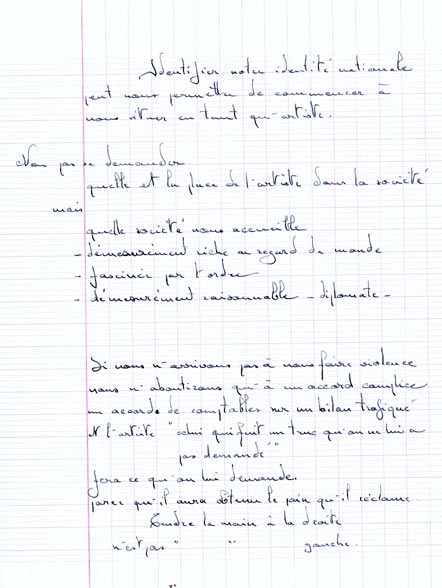 Identifier notre identité nationale
peut nous permettre de commencer à
nous situer en tant qu'artiste.
Non pas se demander
quelle est la place de l'artiste dans la société
mais
quelle société nous accueille
- démesurément riche au regard du monde
- fascinée par l'ordre
- démesurément raisonnable - diplomate -
Si nous n'arrivons pas à nous faire violence
nous n'aboutirons qu'à un accord complice
un accord de comptables sur un bilan trafiqué
et l'artiste "celui qui fait un truc qu'on ne lui a
pas demandé"
fera ce qu'on lui demande.
parce qu'il aura obtenu le pain qu'il réclame.
Tendre la main à la droite
n'est pas " " gauche.